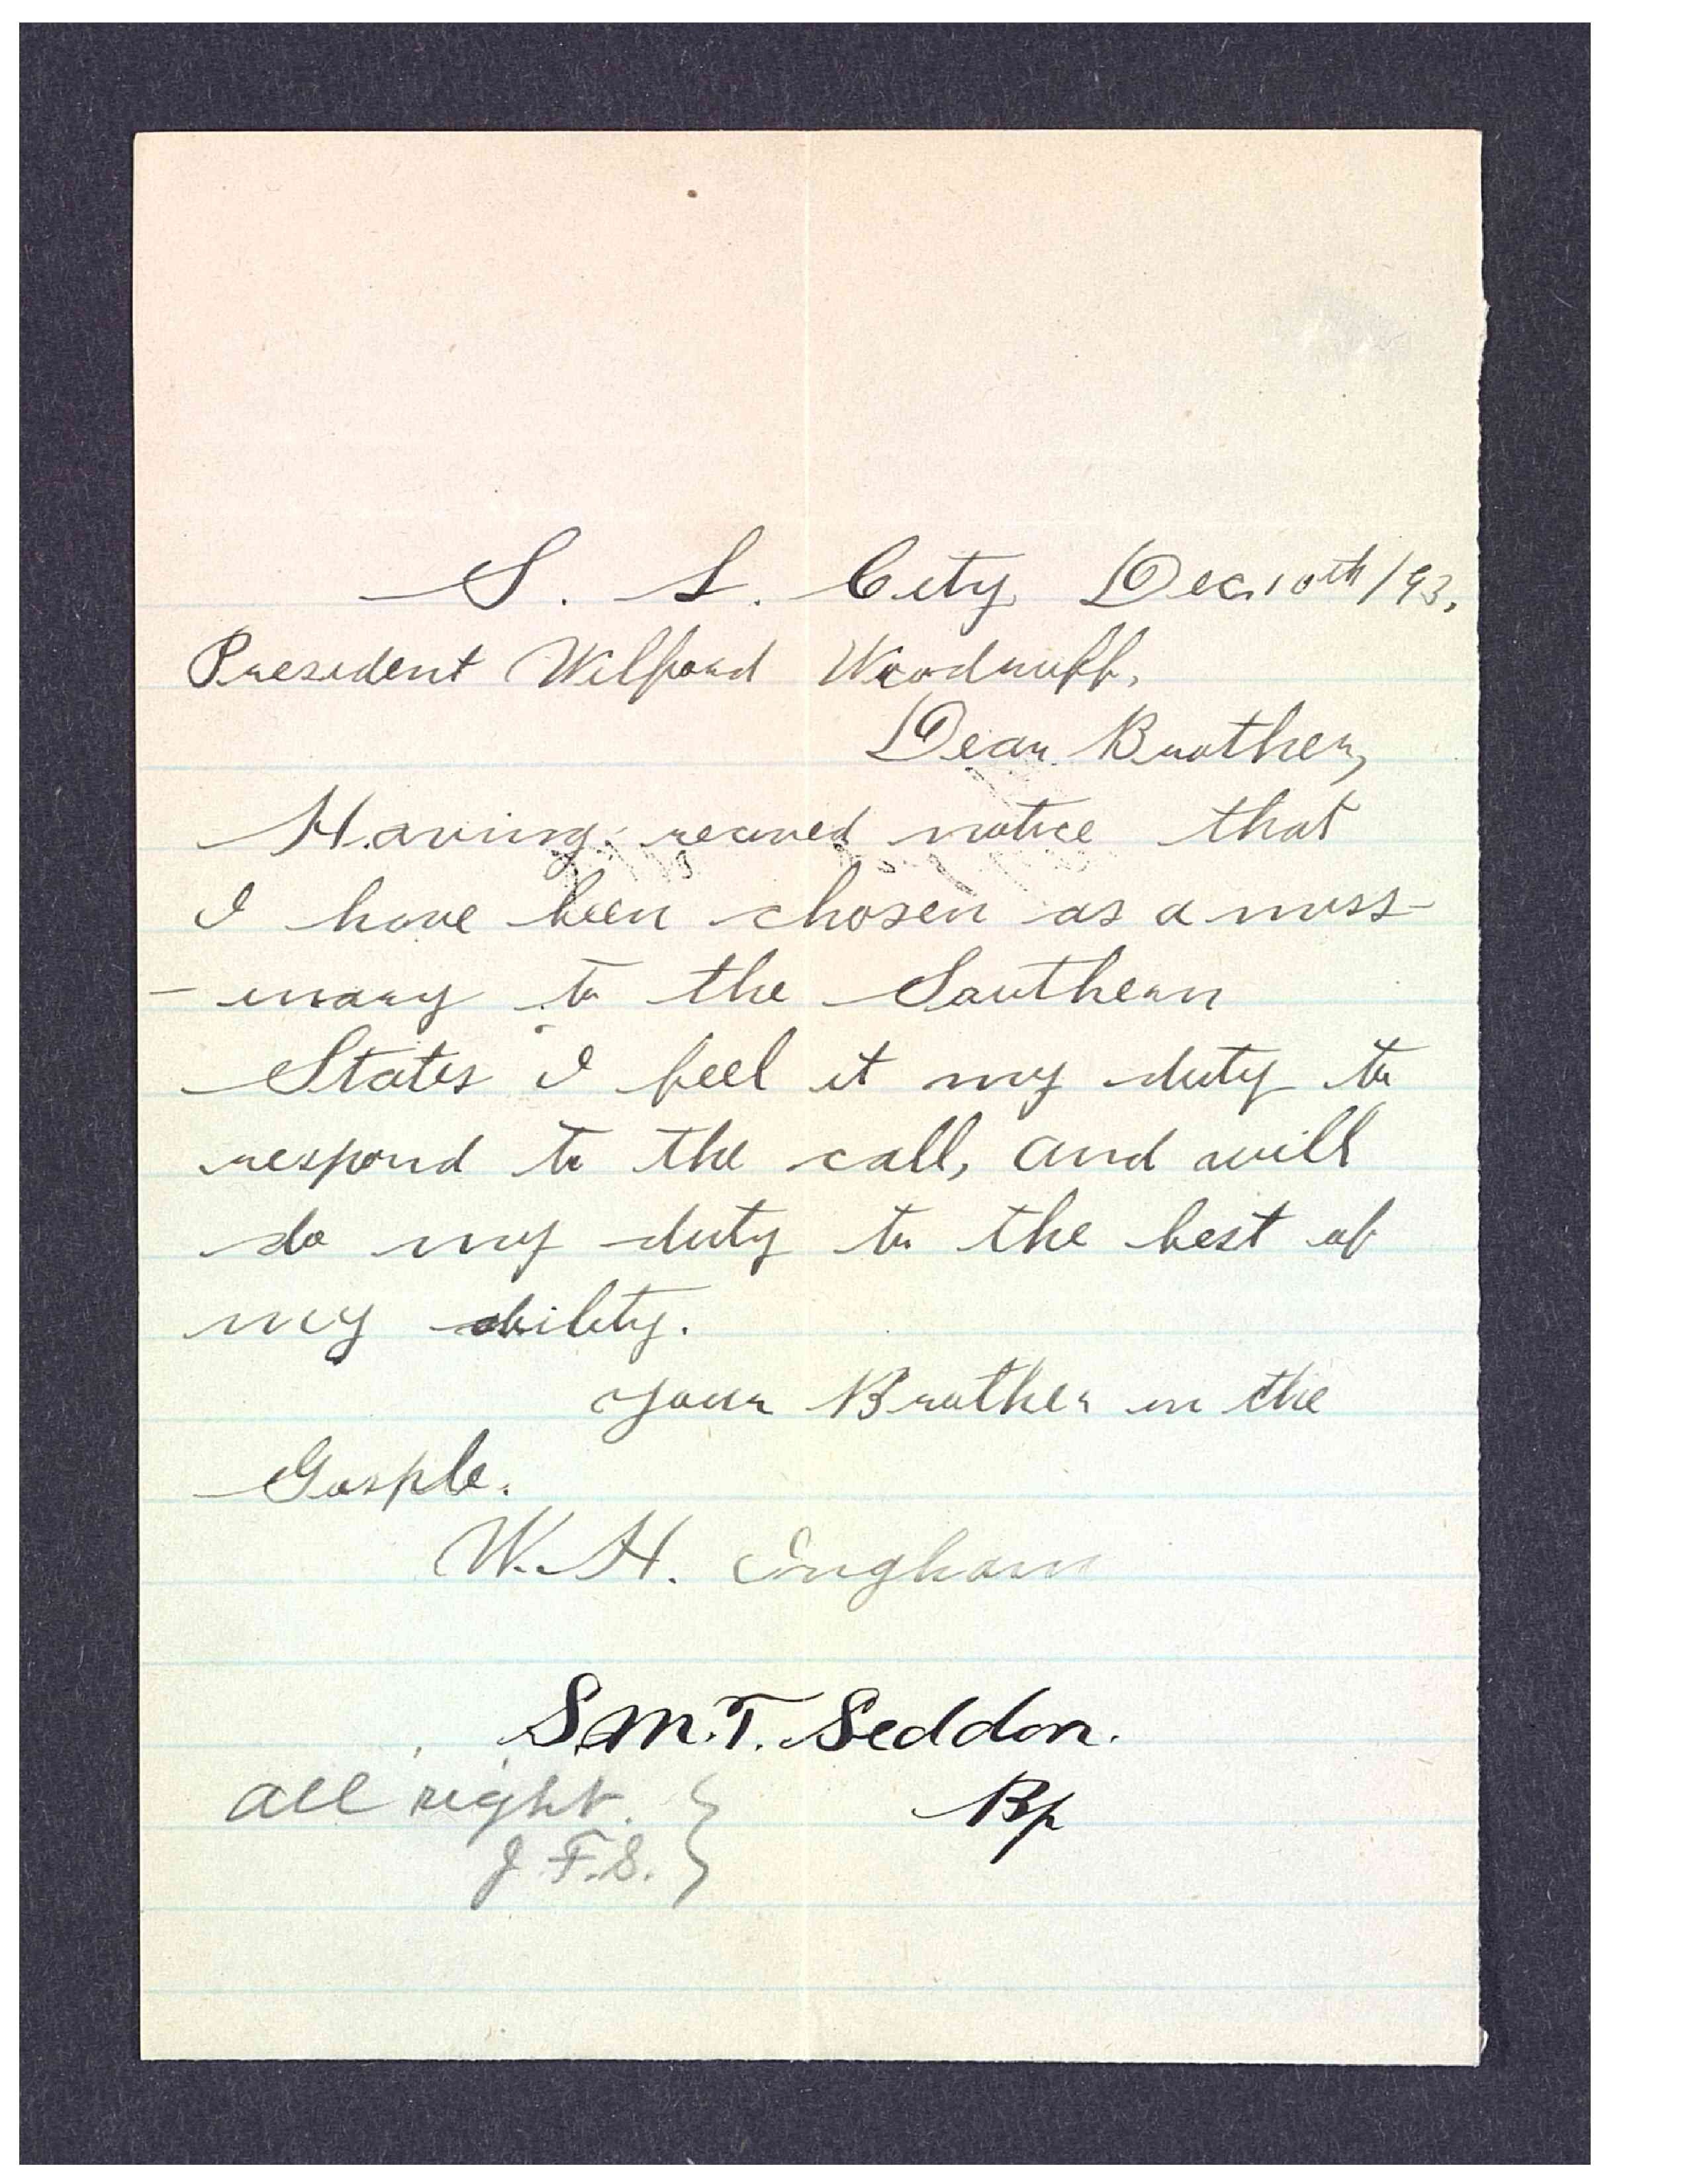 S. L. City, Dec. 10th/93.
President Wilford Woodruff,
Dear Brother,
Having recived notice that
I have been chosen as a miss-
-inary to the Southern
States I feel it my duty to
respond to the call, and will
do my duty to the best of
my ability.
Your Brother in the
Gosple.
W. H. Ingham
S.M.T. Seddon.
Bp
all right.
J.F.S.